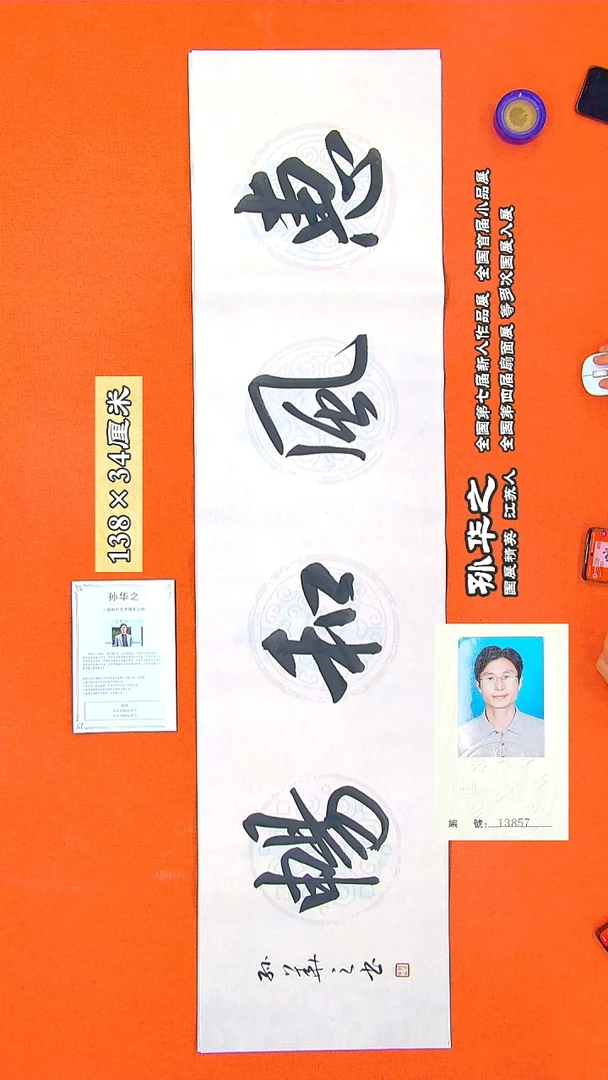 惠風和暢
孙華之书
138×34厘米
孙华之
国展精英 江苏人
全国第七届新人作品展 全国首届小品展
全国第四届扇面展 等多次国展入展
孙华之
編 號: 13857